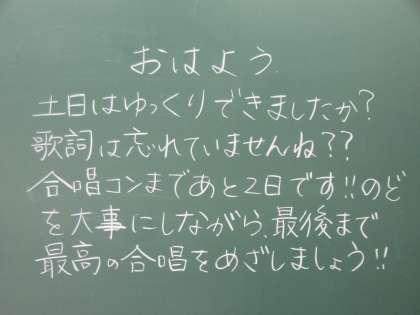 おはよう.
土日はゆっくりできましたか?
歌詞は忘れていませんね??
合唱コンまであと2日です!!のど
を大事にしながら、最後まで
最高の合唱をめざしましょう!!